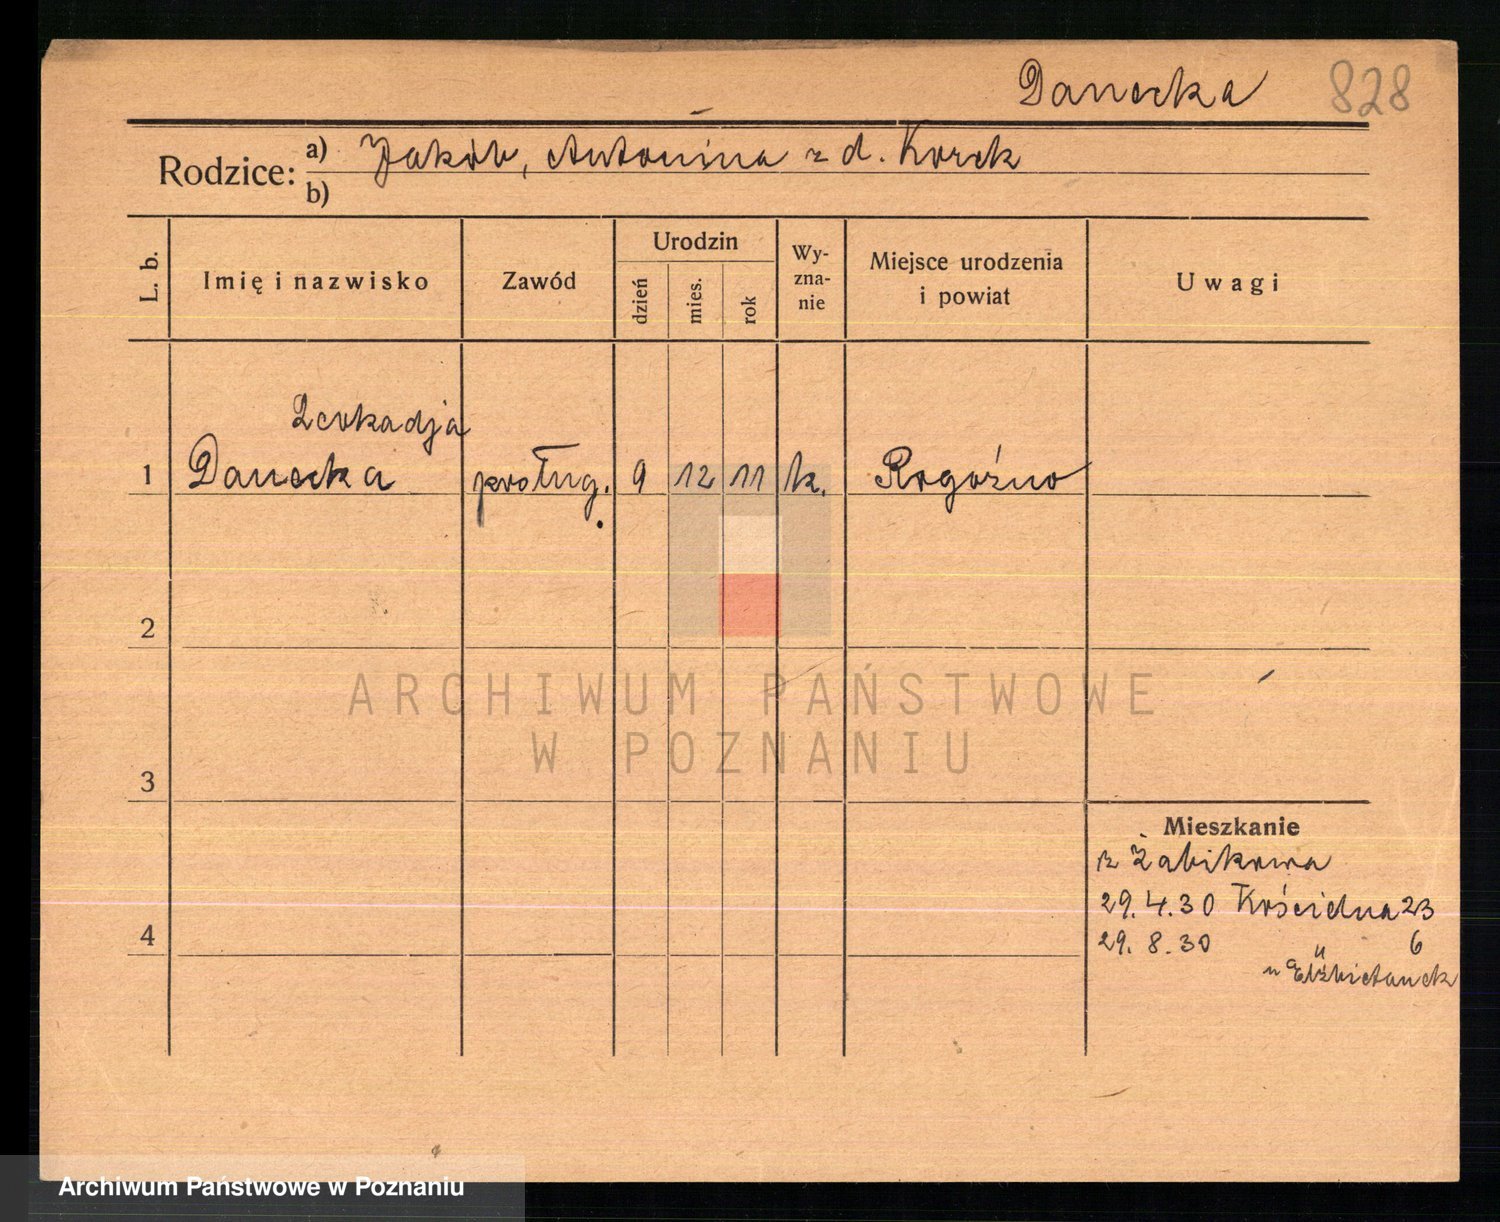 Danecka 828
Rodzice: a) Jakób, Antonina z d. Korek
b)
L. b.
Imię i nazwisko
Zawód
Urodzin
dzień
mies.
rok
Wy-
zna-
nie
Miejsce urodzenia
i powiat
Uwagi
Leokadja
1 Danecka 9 12 11 k. Rogoźno
2
3
4
Mieszkanie
z Żabikowa
29.4.30 Kościelna 23
29.8.30 " 6
u Elżbietanek
ARCHIWUM PAŃSTWOWE
W POZNANIU
Archiwum Państwowe w Poznaniu